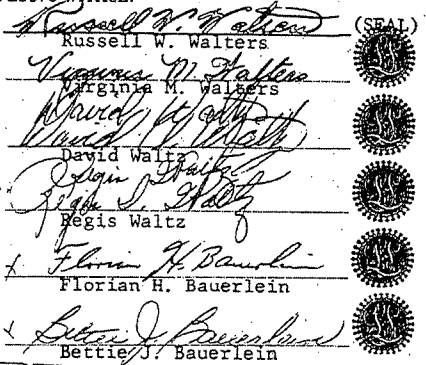 Russell W. Walters (SEAL)
Russell W. Walters
Virginia M. Walters
Virginia M. Walters
David Waltz
David Waltz
Regis Waltz
Regis Waltz
x Florian H. Bauerlein
Florian H. Bauerlein
x Bettie J. Bauerlein
Bettie J. Bauerlein